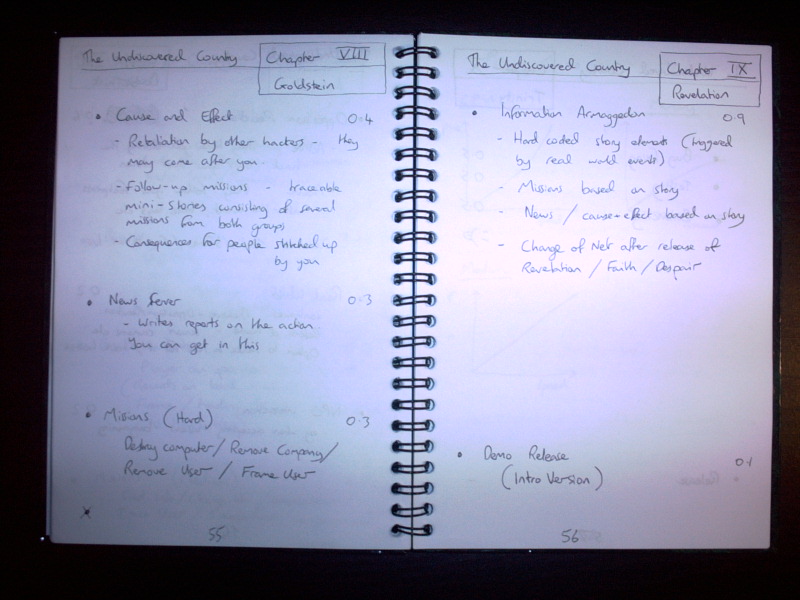 The Undiscovered Country
Chapter VIII
Goldstein
• Cause and Effect 0.4
- Retaliation by other hackers - they
may come after you.
- Follow-up missions - traceable
mini-stories consisting of several
missions from both groups
- Consequences for people stitched up
by you
• News Server 0.3
- Writes reports on the action.
You can get in this
• Misions (Hard) 0.3
Destroy computer / Remove Company /
Remove User / Frame User
x
55
The Undiscovered Country
Chapter IX
Revelation
• Information Armaggedon 0.9
- Hard coded story elements (triggered
by real world events)
- Missions based on story
- News / cause+effect based on story
- Change of Net after release of
Revelation / Faith / Despair
• Demo Release 0.1
(Intro Version)
56